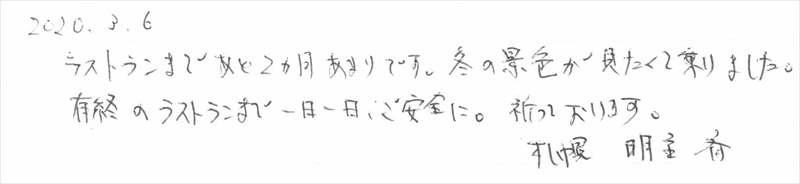 2020.3.6
ラストランまであと2カ月あまりです。冬の景色が見たくて乗りました。
有終のラストランまで一日一日、ご安全に。祈っております。
札幌 明主 香